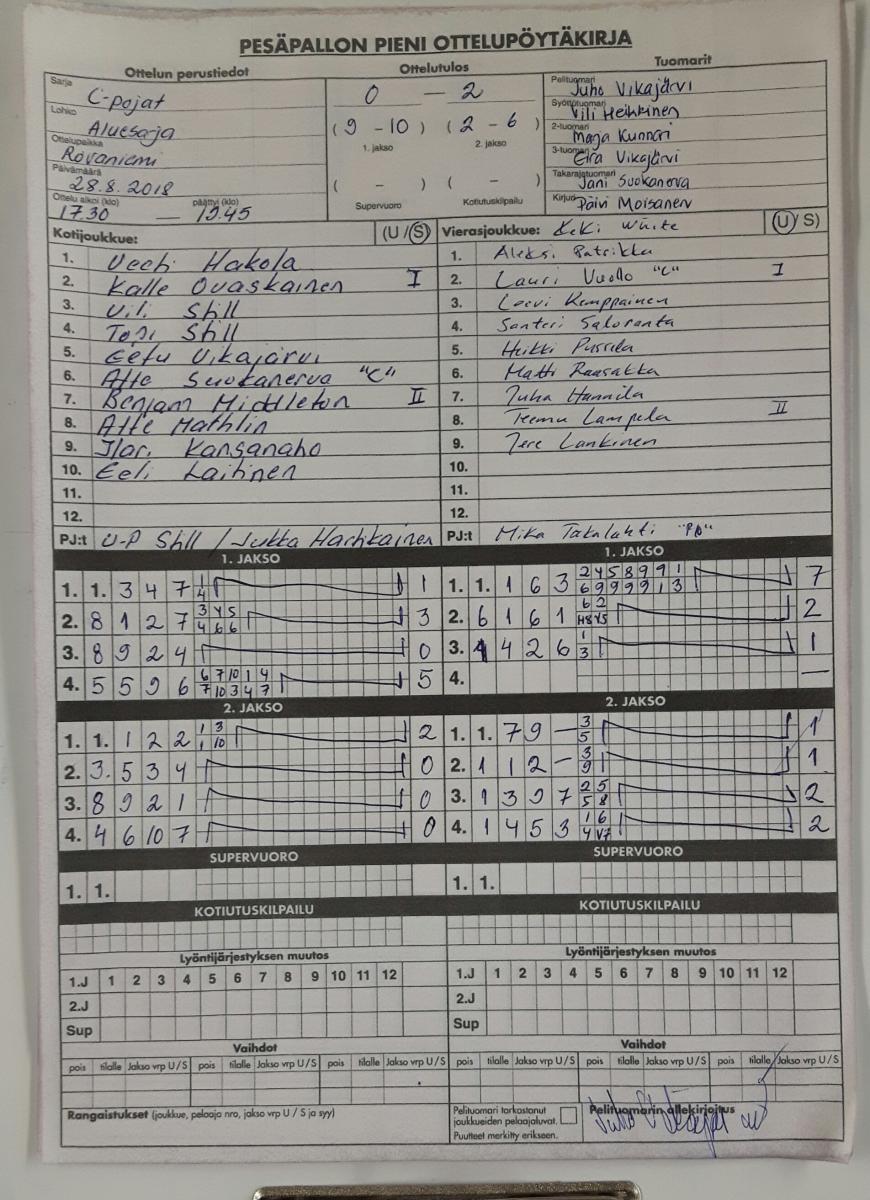 PESÄPALLON PIENI OTTELUPÖYTÄKIRJA
Ottelun perustiedot
Ottelutulos
Tuomarit
Sarja C-pojat
Lohko Aluesarja
Ottelupaikka Rovaniemi
Päivämäärä 28.8.2018
Ottelu alkoi (klo) päättyi (klo)
17.30 — 19.45
0 — 2
(9 - 10) (2 - 6)
1. jakso 2. jakso
( - ) ( - )
Supervuoro Kotiutuskilpailu
Pelituomari Juho Vikajärvi
Syöttötuomari Vili Heikkinen
2-tuomari Marja Kunnari
3-tuomari Eira Vikajärvi
Takarajatuomari Jani Suokanerva
Kirjuri Päivi Moisanen
Kotijoukkue: (U / S)
1. Veeti Hakola
2. Kalle Ovaskainen I
3. Vili Still
4. Topi Still
5. Eetu Vikajärvi
6. Atte Suokanerva "C"
7. Benjam Middleton II
8. Atte Mathlin
9. Ilari Kansanaho
10. Eeli Laitinen
11.
12.
PJ:t U-P Still / Jukka Harhkainen
Vierasjoukkue: KeKi White (U / S)
1. Aleksi Patrikka
2. Lauri Vuollo "C" I
3. Leevi Kemppainen
4. Santeri Saloranta
5. Heikki Pussila
6. Matti Raasakka
7. Juha Hannila
8. Teemu Lampela II
9. Jere Lankinen
10.
11.
12.
PJ:t Mika Takalahti "PA"
1. JAKSO
1. 1. 3 4 7 1 1
4
2. 8 1 2 7 3 4 5 3
4 6 6
3. 8 9 2 4 0
4. 5 5 9 6 6 7 10 1 4 5
7 10 3 4 7
1. JAKSO
1. 1. 1 6 3 2 4 5 8 9 9 1 7
6 9 9 9 9 1 3
2. 6 1 6 1 6 2 2
3. 4 4 2 6 1 1
3
4. —
2. JAKSO
1. 1. 1 2 2 1 3 2
1 10
2. 3. 5 3 4 0
3. 8 9 2 1 0
4. 4 6 10 7 0
2. JAKSO
1. 1. 7 9 — 3 1
5
2. 1 1 2 — 3 1
9
3. 1 3 9 7 2 5 2
5 8
4. 1 4 5 3 1 6 2
4 V7
SUPERVUORO
1. 1.
SUPERVUORO
1. 1.
KOTIUTUSKILPAILU
KOTIUTUSKILPAILU
Lyöntijärjestyksen muutos
1.J 1 2 3 4 5 6 7 8 9 10 11 12
2.J
Sup
Lyöntijärjestyksen muutos
1.J 1 2 3 4 5 6 7 8 9 10 11 12
2.J
Sup
Vaihdot
pois tilalle Jakso vrp U / S pois tilalle Jakso vrp U / S pois tilalle Jakso vrp U / S
Vaihdot
pois tilalle Jakso vrp U / S pois tilalle Jakso vrp U / S pois tilalle Jakso vrp U / S
Rangaistukset (joukkue, pelaaja nro, jakso vrp U / S ja syy)
Pelituomari tarkastanut
joukkueiden pelaajaluvat.
Puutteet merkitty erikseen.
Pelituomarin allekirjoitus